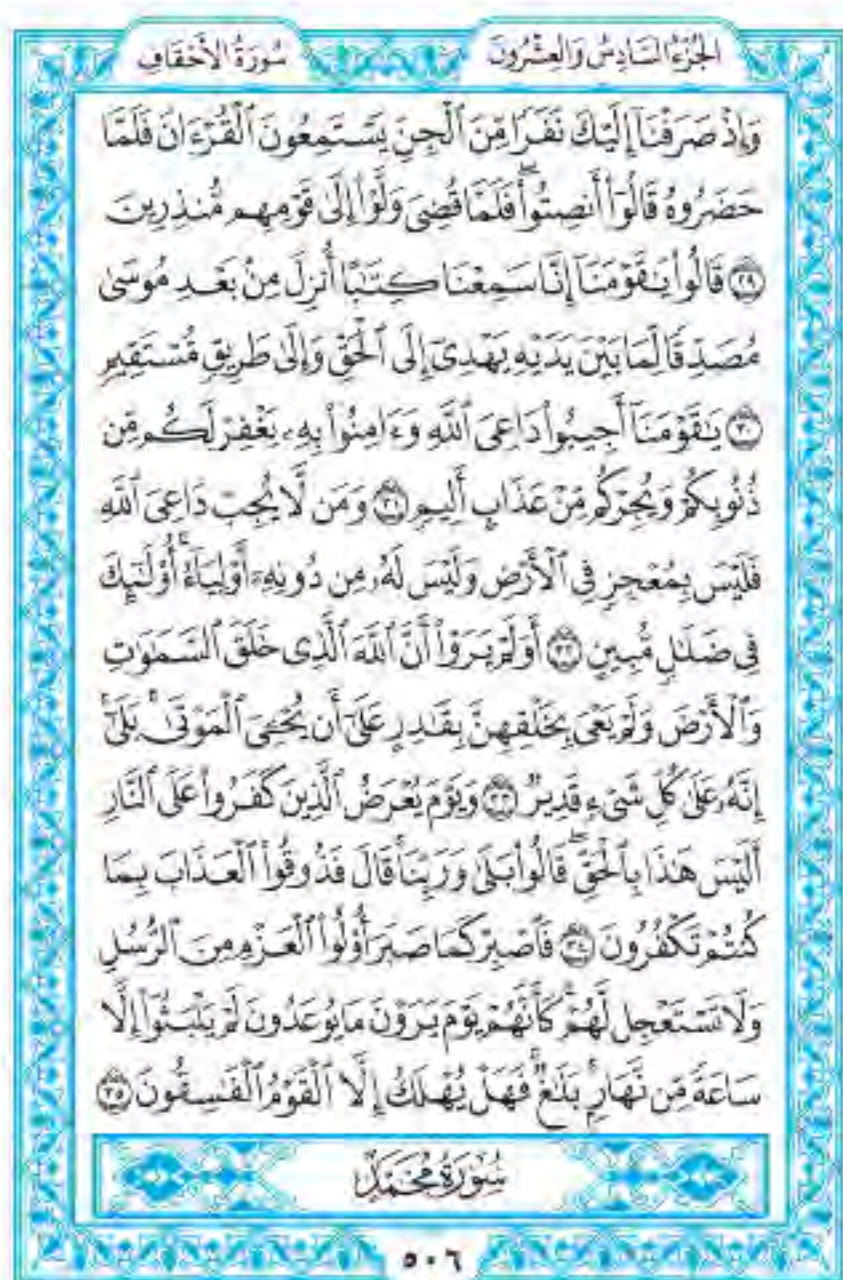 الجُزْءُ السَّادِسُ وَالعِشْرُونَ
سُورَةُ الأَحْقَافِ
وَإِذْ صَرَفْنَآ إِلَيْكَ نَفَرًا مِّنَ ٱلْجِنِّ يَسْتَمِعُونَ ٱلْقُرْءَانَ فَلَمَّا
حَضَرُوهُ قَالُوٓا۟ أَنصِتُوا۟ ۖ فَلَمَّا قُضِىَ وَلَّوْا۟ إِلَىٰ قَوْمِهِم مُّنذِرِينَ
٢٩ قَالُوا۟ يَٰقَوْمَنَآ إِنَّا سَمِعْنَا كِتَٰبًا أُنزِلَ مِنۢ بَعْدِ مُوسَىٰ
مُصَدِّقًا لِّمَا بَيْنَ يَدَيْهِ يَهْدِىٓ إِلَى ٱلْحَقِّ وَإِلَىٰ طَرِيقٍ مُّسْتَقِيمٍ
٣٠ يَٰقَوْمَنَآ أَجِيبُوا۟ دَاعِىَ ٱللَّهِ وَءَامِنُوا۟ بِهِۦ يَغْفِرْ لَكُم مِّن
ذُنُوبِكُمْ وَيُجِرْكُم مِّنْ عَذَابٍ أَلِيمٍ ٣١ وَمَن لَّا يُجِبْ دَاعِىَ ٱللَّهِ
فَلَيْسَ بِمُعْجِزٍ فِى ٱلْأَرْضِ وَلَيْسَ لَهُۥ مِن دُونِهِۦٓ أَوْلِيَآءُ ۚ أُو۟لَٰٓئِكَ
فِى ضَلَٰلٍ مُّبِينٍ ٣٢ أَوَلَمْ يَرَوْا۟ أَنَّ ٱللَّهَ ٱلَّذِى خَلَقَ ٱلسَّمَٰوَٰتِ
وَٱلْأَرْضَ وَلَمْ يَعْىَ بِخَلْقِهِنَّ بِقَٰدِرٍ عَلَىٰٓ أَن يُحْۦِىَ ٱلْمَوْتَىٰ ۚ بَلَىٰٓ
إِنَّهُۥ عَلَىٰ كُلِّ شَىْءٍ قَدِيرٌ ٣٣ وَيَوْمَ يُعْرَضُ ٱلَّذِينَ كَفَرُوا۟ عَلَى ٱلنَّارِ
أَلَيْسَ هَٰذَا بِٱلْحَقِّ ۖ قَالُوا۟ بَلَىٰ وَرَبِّنَا ۚ قَالَ فَذُوقُوا۟ ٱلْعَذَابَ بِمَا
كُنتُمْ تَكْفُرُونَ ٣٤ فَٱصْبِرْ كَمَا صَبَرَ أُو۟لُوا۟ ٱلْعَزْمِ مِنَ ٱلرُّسُلِ
وَلَا تَسْتَعْجِل لَّهُمْ ۚ كَأَنَّهُمْ يَوْمَ يَرَوْنَ مَا يُوعَدُونَ لَمْ يَلْبَثُوٓا۟ إِلَّا
سَاعَةً مِّن نَّهَارٍۭ ۚ بَلَٰغٌ ۚ فَهَلْ يُهْلَكُ إِلَّا ٱلْقَوْمُ ٱلْفَٰسِقُونَ ٣٥
سُورَةُ مُحَمَّدٍ
٥٠٦